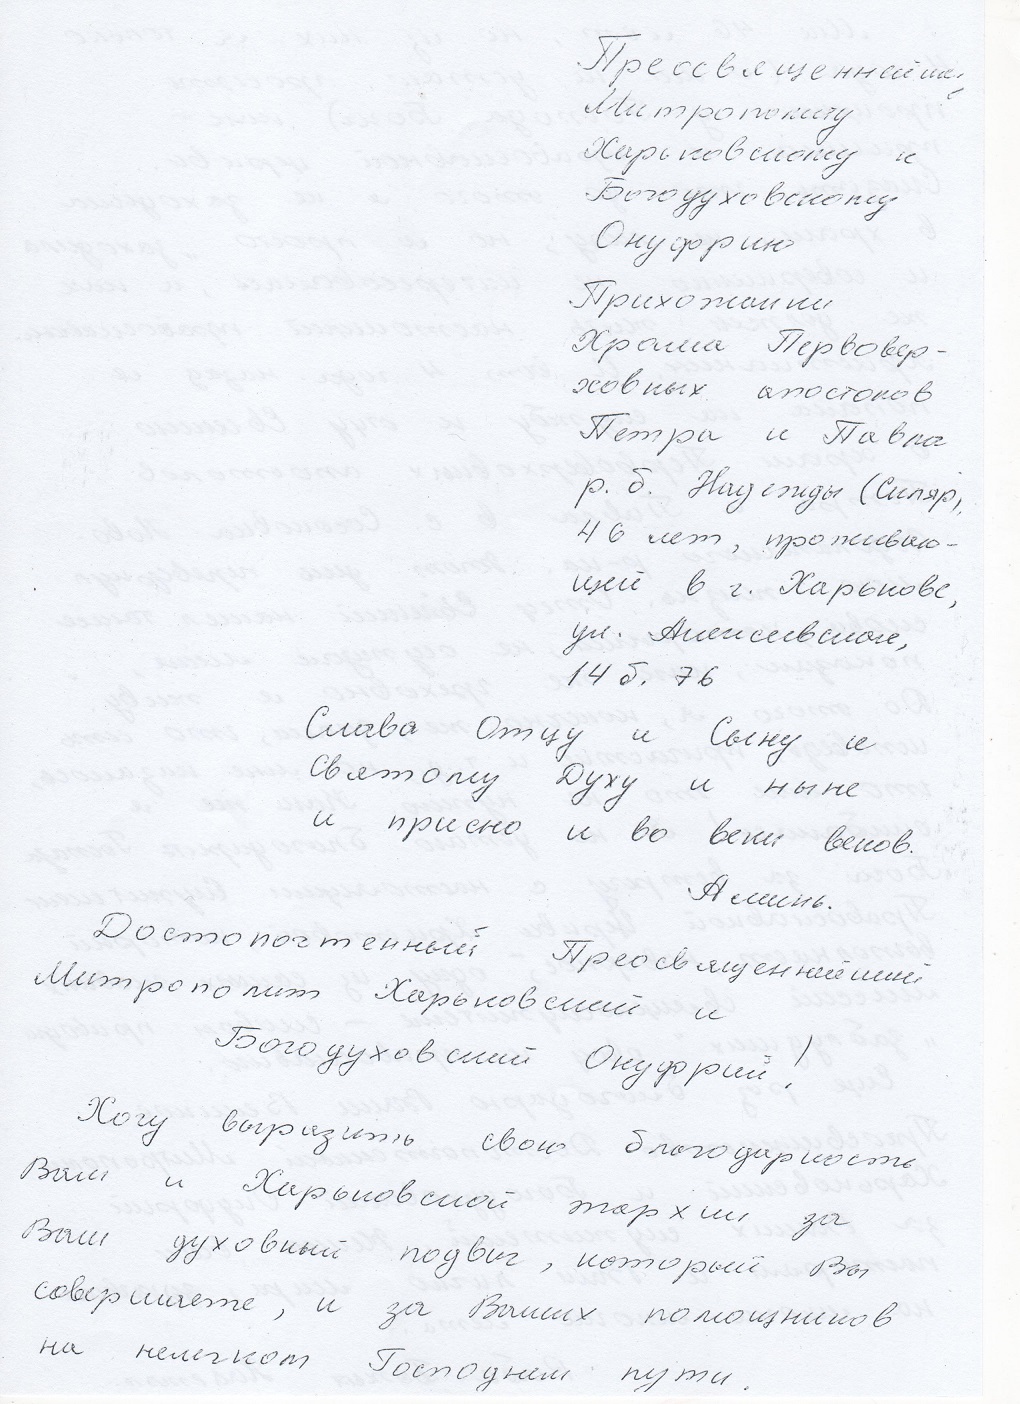 Преосвященнейше
Митрополиту
Харьковскому и
Богодуховскому
Онуфрию
Прихожанки
Храма Первовер-
ховных апостолов
Петра и Павла
р. б. Надежды (Скляр),
46 лет, проживаю-
щей в г. Харькове,
ул. Алексеевская,
14 б. 76
Слава Отцу и Сыну и
Святому Духу и ныне
и присно и во веки веков.
Аминь.
Достопочтенный Преосвященнейший
Митрополит Харьковский и
Богодуховский Онуфрий!
Хочу выразить свою благодарность
Вам и Харьковской епархии за
Ваш духовный подвиг, который Вы
совершаете, и за Ваших помощников
на нелегком Господнем пути.